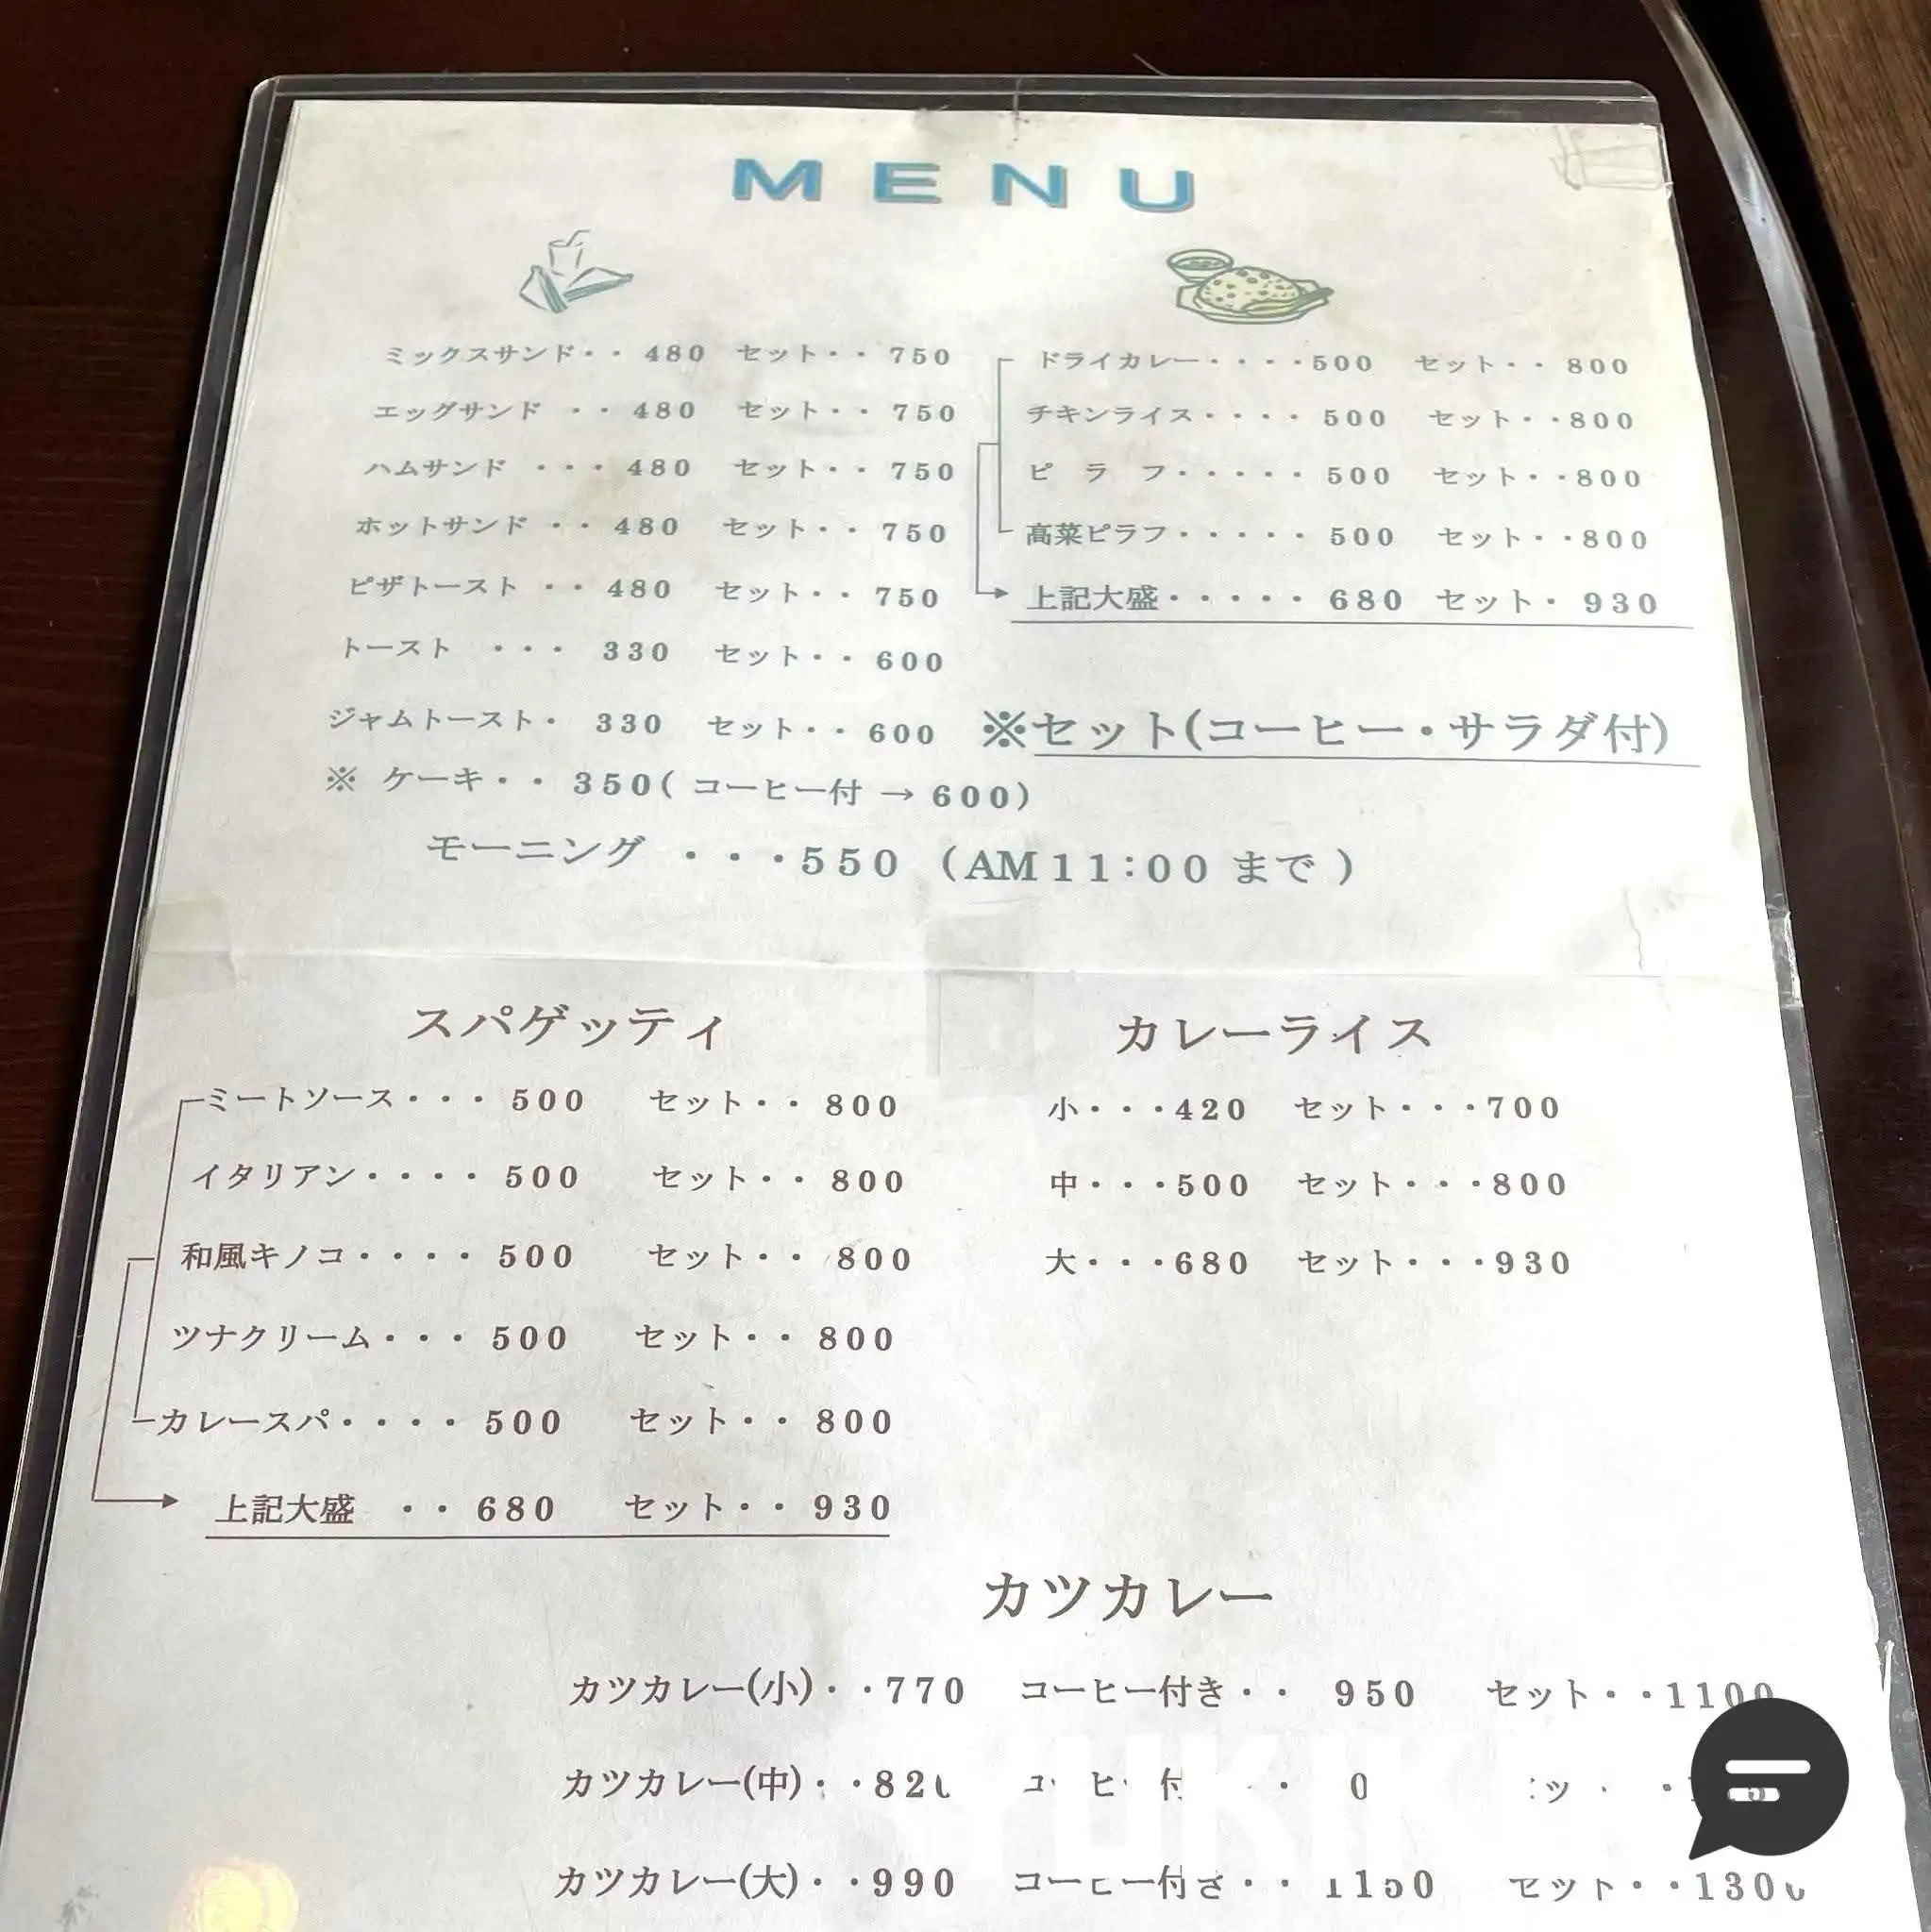 MENU
ミックスサンド・・ 480 セット・・ 750
エッグサンド ・・ 480 セット・・ 750
ハムサンド ・・・ 480 セット・・ 750
ホットサンド ・・ 480 セット・・ 750
ピザトースト ・・ 480 セット・・ 750
トースト ・・・ 330 セット・・ 600
ジャムトースト・ 330 セット・・ 600
※ ケーキ・・ 350( コーヒー付 → 600)
ドライカレー・・・・500 セット・・ 800
チキンライス・・・・ 500 セット・・800
ピ ラ フ・・・・・ 500 セット・・800
高菜ピラフ・・・・・ 500 セット・・800
上記大盛・・・・・ 680 セット・ 930
※セット(コーヒー・サラダ付)
モーニング ・・・550 (AM11:00 まで )
スパゲッティ
ミートソース・・・ 500 セット・・ 800
イタリアン・・・・ 500 セット・・ 800
和風キノコ・・・・ 500 セット・・ 800
ツナクリーム・・・ 500 セット・・ 800
カレースパ・・・・ 500 セット・・ 800
上記大盛 ・・ 680 セット・・ 930
カレーライス
小・・・420 セット・・・700
中・・・500 セット・・・800
大・・・680 セット・・・930
カツカレー
カツカレー(小)・・770 コーヒー付き・・ 950 セット・・1100
カツカレー(中)・・820
カツカレー(大)・・990 コーヒー付き・・ 1150 セット・・1300